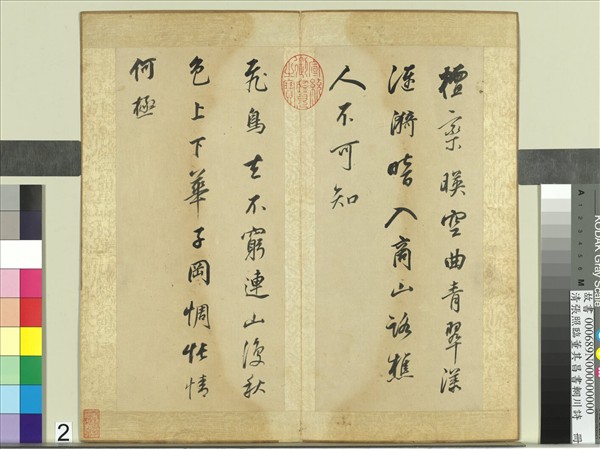 檀欒暎空曲青翠漾
漣漪暗入商山路樵
人不可知
飛鳥去不窮連山復秋
色上下華子岡惆悵情
何極
KODAK Gray Scale
A 1 2 3 4 5 6 M
故書 000689N000000000
清張照臨董其昌書輞川詩 冊
2